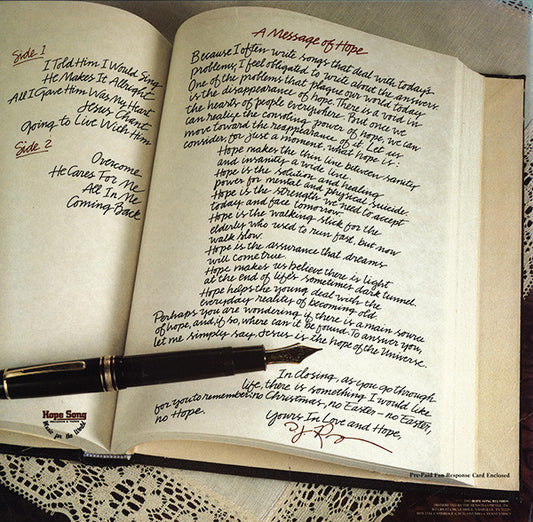 Side 1
I Told Him I Would Sing
He Makes It Allright
All I Gave Him Was My Heart
Jesus Chant
Going to Live With Him
Side 2
Overcome
He Cares For Me
All In Me
Coming Back
A Message of Hope
Because I often write songs that deal with today's
problems, I feel obligated to write about the answers.
One of the problems that plague our world today
is the disappearance of hope. There is a void in
the hearts of people everywhere. But once we
can realize the consoling power of hope, we can
move toward the reappearance of it. Let us
consider, for just a moment, what hope is:
Hope makes the thin line between sanity
and insanity a wide line.
Hope is the solution and healing
power for mental and physical suicide.
Hope is the strength we need to accept
today and face tomorrow.
Hope is the walking stick for the
elderly who used to run fast, but now
walk slow.
Hope is the assurance that dreams
will come true.
Hope makes us believe there is light
at the end of life's sometimes dark tunnel.
Hope helps the young deal with the
everyday reality of becoming old.
Perhaps you are wondering if there is a main source
of hope, and, if so, where can it be found. To answer you,
let me simply say, Jesus is the hope of the Universe.
In closing, as you go through
life, there is something I would like
for you to remember: no Christmas, no Easter – no Easter,
no Hope.
Yours In Love and Hope,
Hope Song
Music for the World
Pre-Paid Fan Response Card Enclosed
HOPE SONG RECORDS